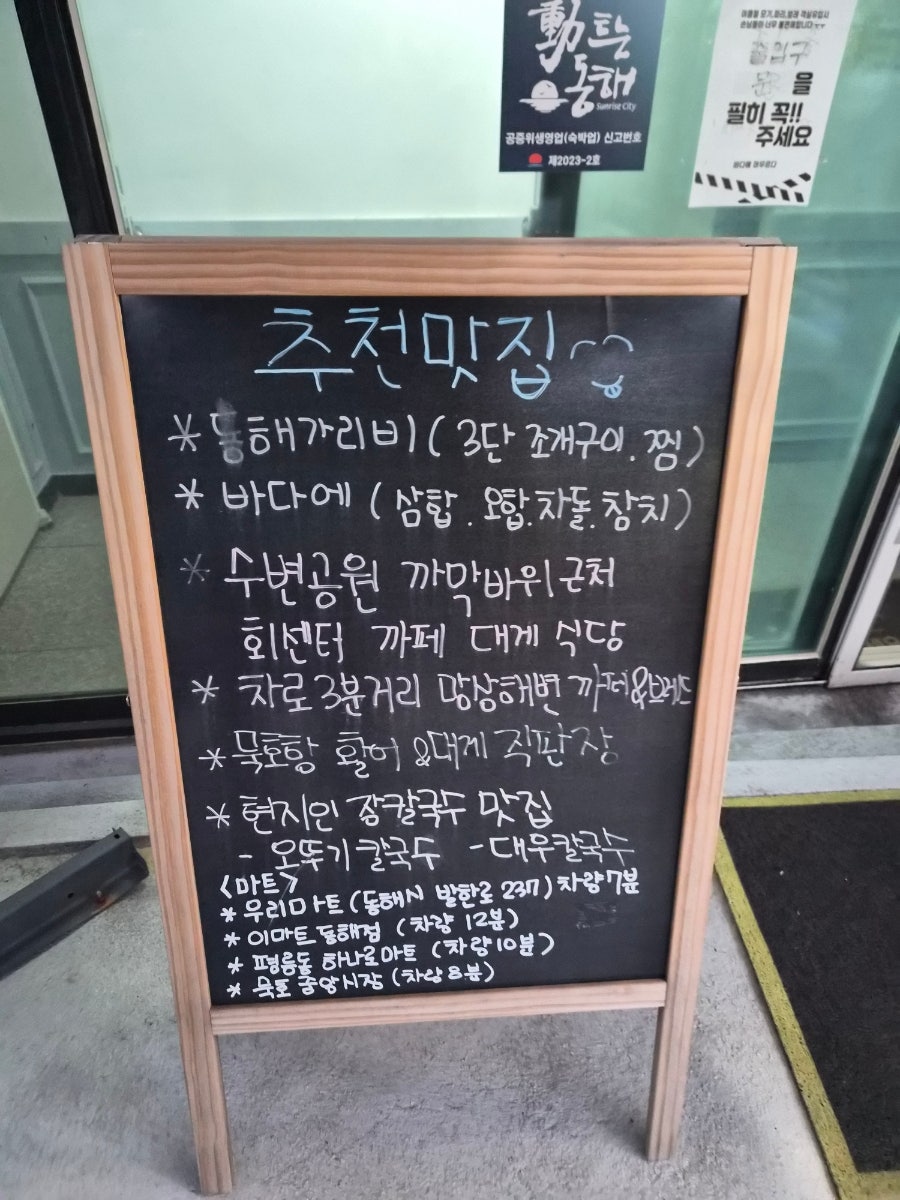 動트는
동해
Sunrise City
공중위생영업(숙박업) 신고번호
제2023-2호
여름철 모기,파리,벌레 객실유입시
손님들이 너무 불편해합니다ㅜㅜ
출입문
을
필히 꼭!!
주세요
추천맛집
* 동해가리비 (3단 조개구이. 찜)
* 바다에 (삼합. 오합.차돌.참치)
* 수변공원 까막바위근처
회센터 까페 대게 식당
* 차로3분거리 망상해변 까페&브레드
* 묵호항 활어&대게 직판장
* 현지인 장칼국수 맛집
- 오뚜기칼국수 - 대우칼국수
<마트>
* 우리마트 (동해시 발한로 237) 차량7분
* 이마트 동해점 (차량 12분)
* 평릉동 하나로마트 (차량10분)
* 묵호 중앙시장 (차량8분)